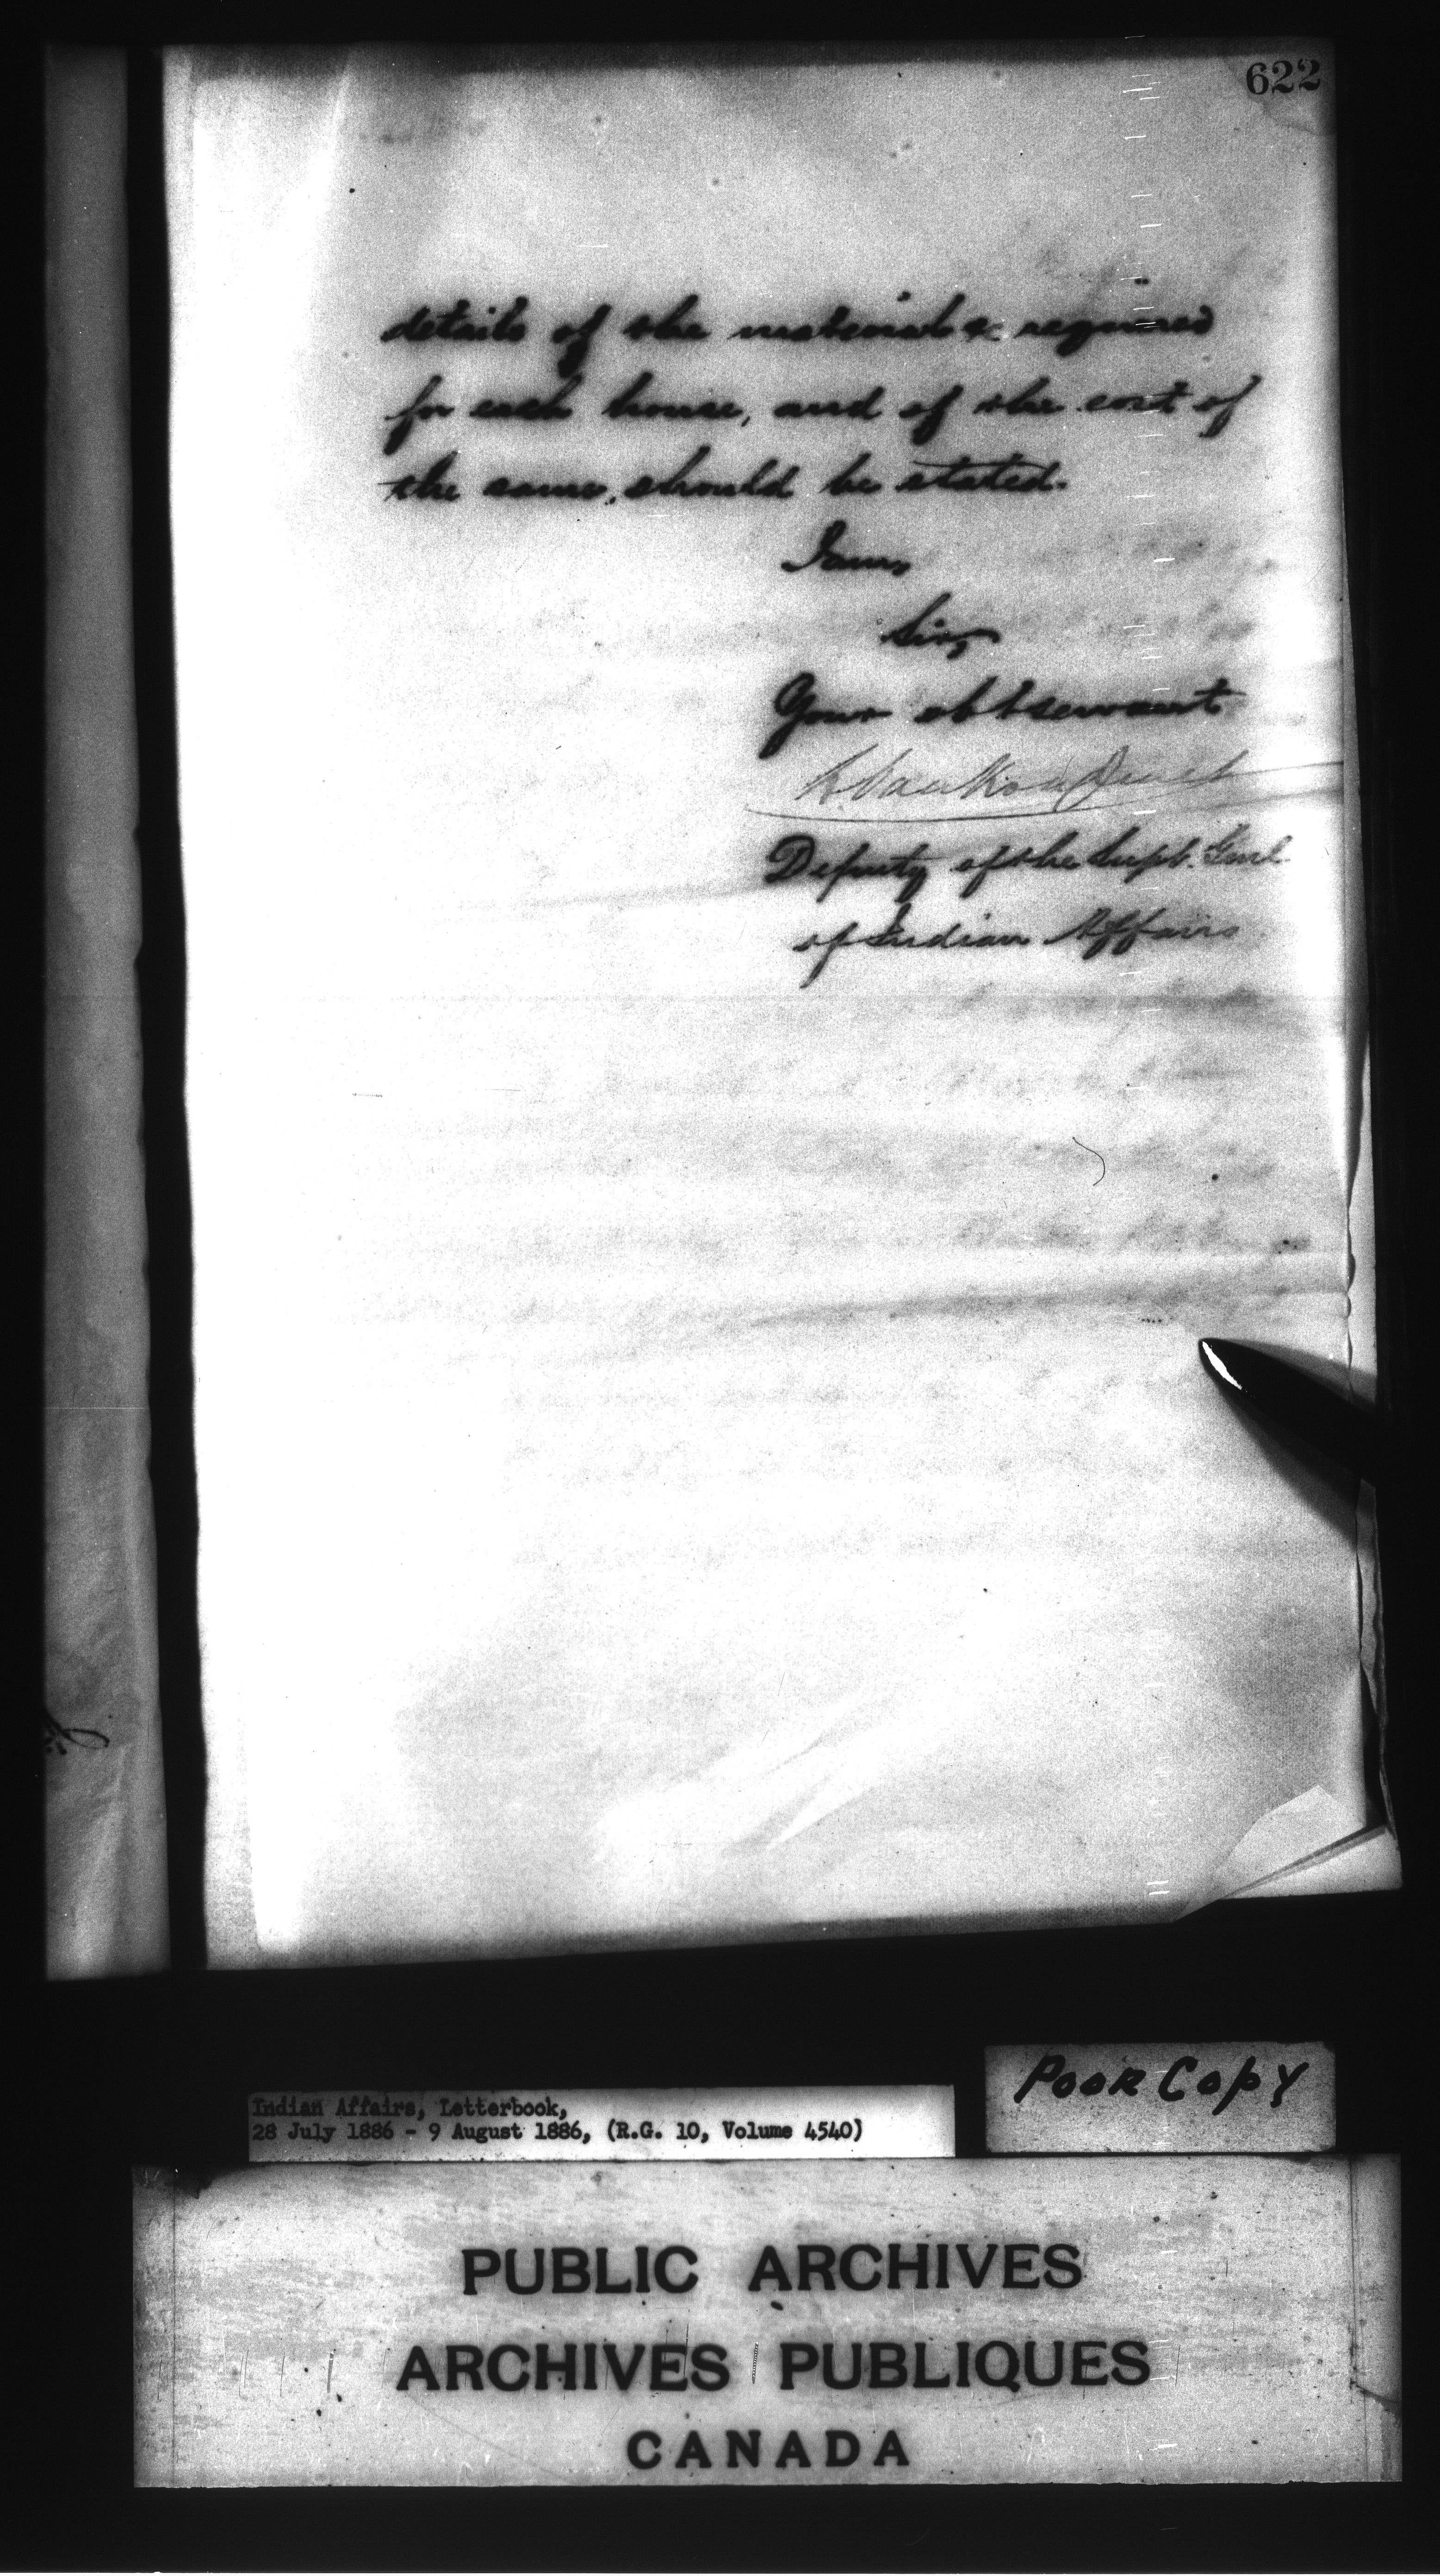 622
details of the material &c required
for each house, and of the cost of
the same, should be stated.
I am,
Sir,
Your obt servant
L. VanKoughnet
Deputy of the Supt. Genl
of Indian Affairs
Poor Copy
Indian Affairs, Letterbook,
28 July 1886 - 9 August 1886, (R.G. 10, Volume 4540)
PUBLIC ARCHIVES
ARCHIVES PUBLIQUES
CANADA